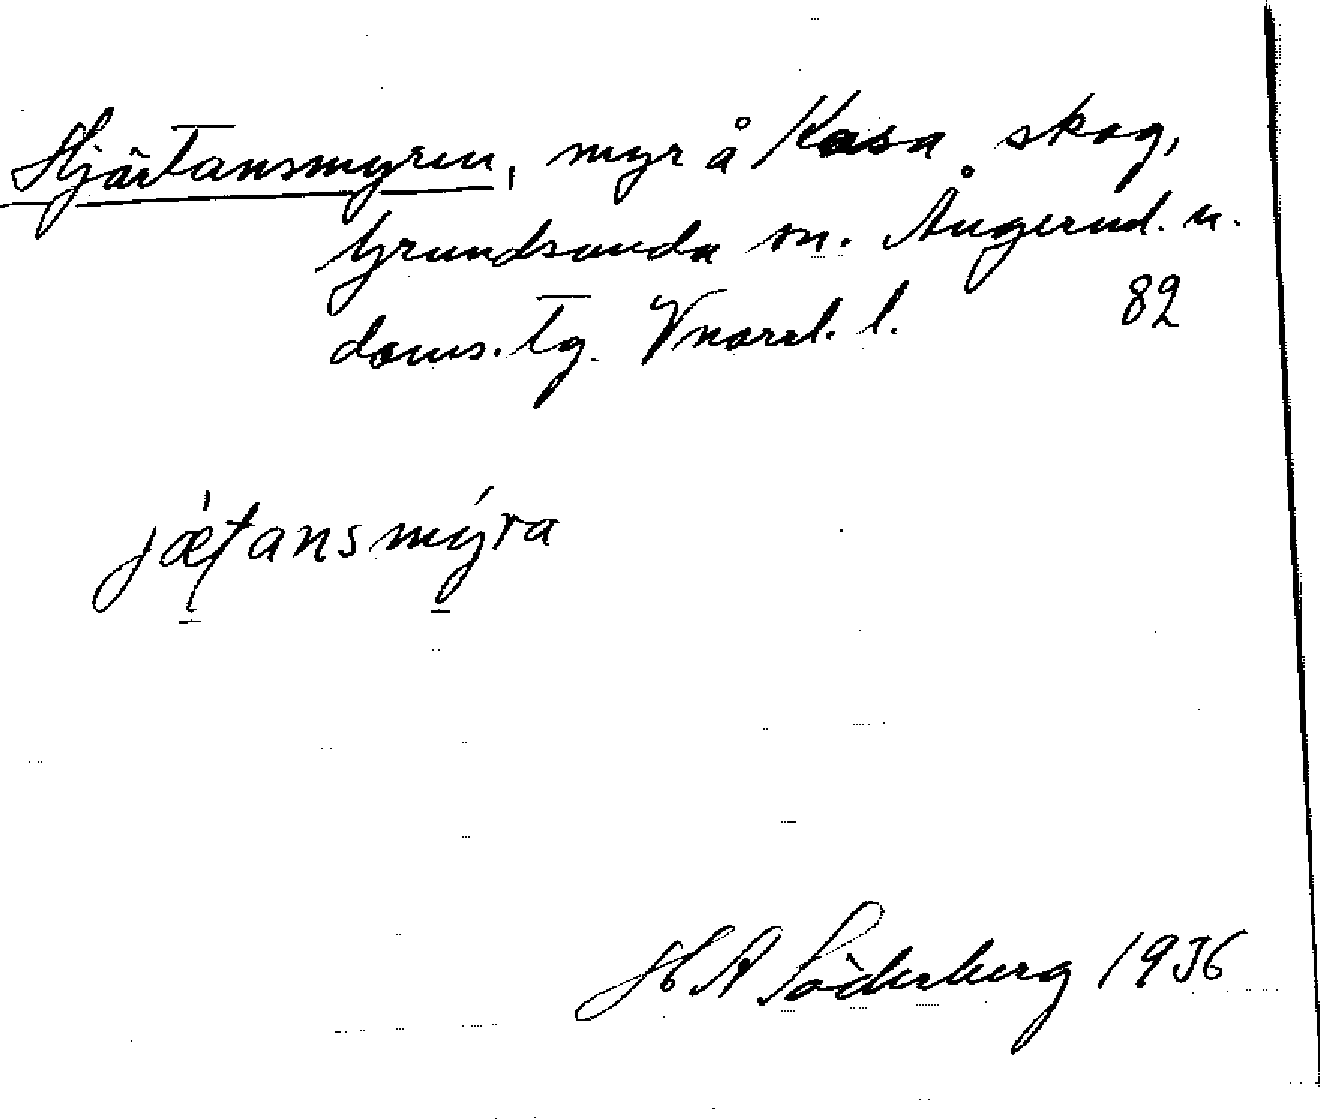 Hjärtansmyren, myr å Kasa skog,
Grundsunda sn. Ångerml. n.
doms. tg. Vnorrl. l. 82
jæʈansmýra
H A Söderberg 1936